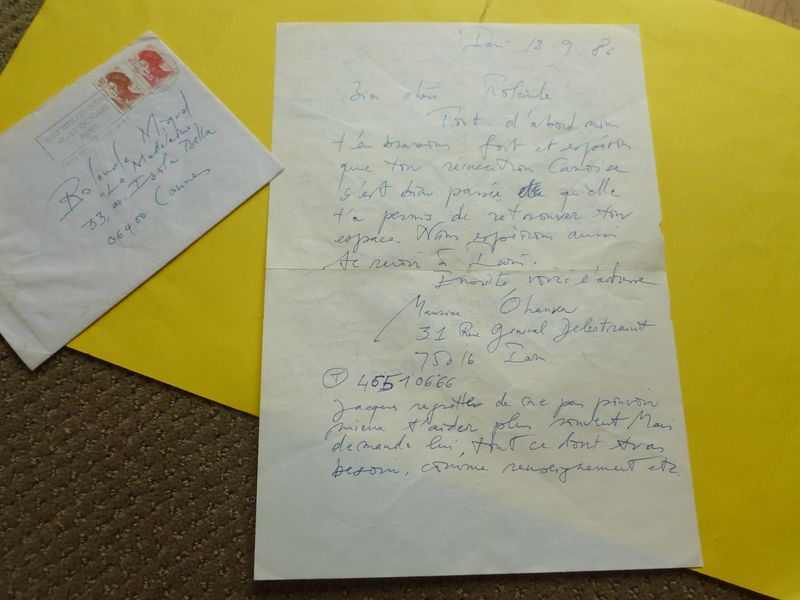 Rolande Miquel
"La Madeleine"
33, av. Isola Bella
06400 Cannes
Paris 12.9.86
Bien chère Rolande
Tout d'abord nous
t'embrassons fort et espérons
que ton réinsertion Cannoise
s'est bien passée, qu'elle
t'a permis de retrouver ton
espace. Nous espérons aussi
te revoir à Paris.
Ensuite voici l'adresse
Maurice Ohana
31 Rue Général Delestraint
75016 Paris
T 45510666
Jacques regrette de ne pas pouvoir
mieux t'aider plus souvent. Mais
demande lui, tout ce dont tu as
besoin, comme renseignement etc.